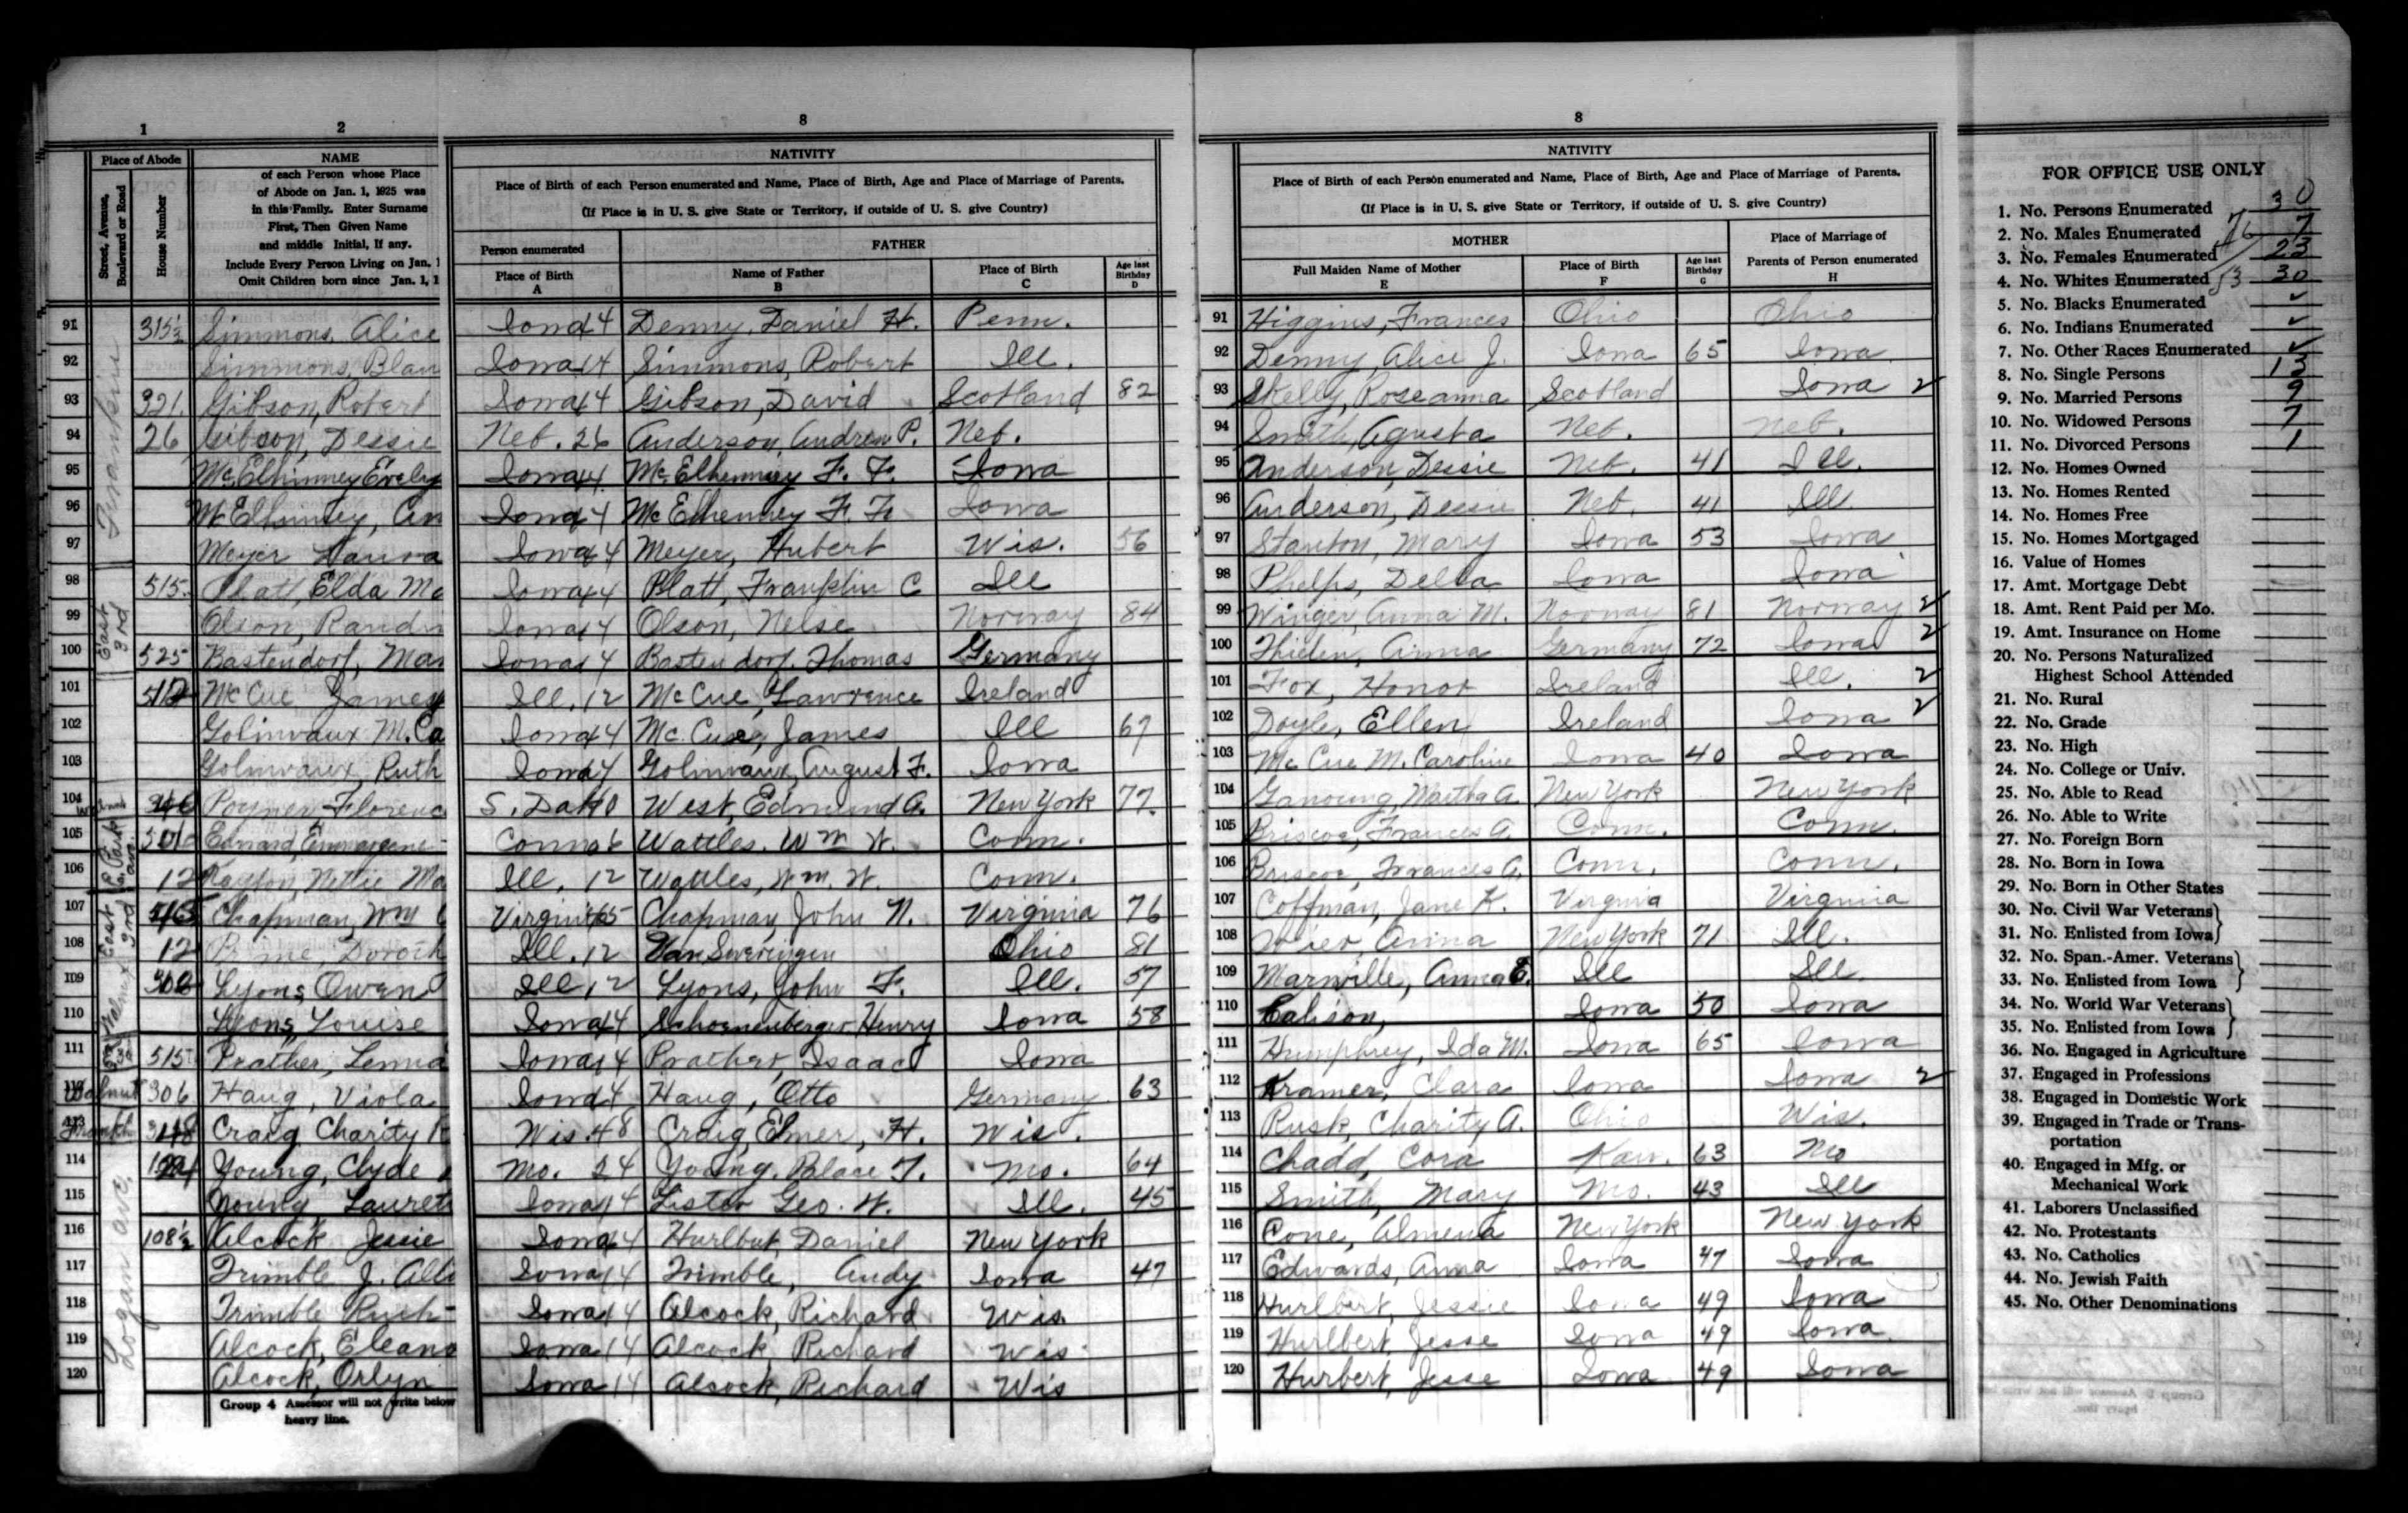 1 2 8 8
Place of Abode
Street, Avenue, Boulevard or Road
House Number
NAME
of each Person whose Place
of Abode on Jan. 1, 1925 was
in this Family. Enter Surname
First, Then Given Name
and middle Initial, If any.
Include Every Person Living on Jan. 1
Omit Children born since Jan. 1, 1
NATIVITY
Place of Birth of each Person enumerated and Name, Place of Birth, Age and Place of Marriage of Parents.
(If Place is in U. S. give State or Territory, if outside of U. S. give Country)
Person enumerated
Place of Birth
A
FATHER
Name of Father
B
Place of Birth
C
Age last Birthday
D
NATIVITY
Place of Birth of each Person enumerated and Name, Place of Birth, Age and Place of Marriage of Parents.
(If Place is in U. S. give State or Territory, if outside of U. S. give Country)
MOTHER
Full Maiden Name of Mother
E
Place of Birth
F
Age last Birthday
G
Place of Marriage of
Parents of Person enumerated
H
Franklin
East 3rd
Logan ave.
91 315½ Simmons, Alice Iowa 14 Denny, Daniel H. Penn. 91 Higgins, Frances Ohio Ohio
92 Simmons, Blan Iowa 14 Simmons, Robert Ill. 92 Denny, Alice J. Iowa 65 Iowa
93 321 Gibson, Robert Iowa 14 Gibson, David Scotland 82 93 Skelly, Roseanna Scotland Iowa 2
94 26 Gibson, Dessie Neb. 26 Anderson, Andrew P. Neb. 94 Smith, Agusta Neb. Neb.
95 McElhinney Evely Iowa 14 McElhenney F. F. Iowa 95 Anderson, Dessie Neb. 41 Ill.
96 McElhinney, An Iowa 14 McElhenney F. F. Iowa 96 Anderson, Dessie Neb. 41 Ill.
97 Meyer Laura Iowa 14 Meyer, Hubert Wis. 56 97 Stanton, Mary Iowa 53 Iowa
98 515 Platt, Elda Ma Iowa 14 Platt, Franklin C Ill 98 Phelps, Della Iowa Iowa
99 Olson, Rand Iowa 14 Olson, Nelse Norway 84 99 Winger, Anna M. Norway 81 Norway 2
100 525 Bastendorf, Mar Iowa 14 Bastendorf, Thomas Germany 100 Thielen, Anna Germany 72 Iowa 2
101 McCue James Ill. 12 McCue, Lawrence Ireland 101 Fox, Honor Ireland Ill. 2
102 Golinvaux M. Ca Iowa 14 McCue, James Ill 67 102 Doyle, Ellen Ireland Iowa 2
103 Golinvaux, Ruth Iowa 14 Golinvaux, August F. Iowa 103 McCue M. Caroline Iowa 40 Iowa
104 Poyner Florenc S. Dak 40 West, Edmund A. New York 77 104 Ganoung, Martha A. New York New York
105 Conn 6 Wattles, Wm W. Conn. 105 Briscoe, Frances A. Conn. Conn.
106 12 Nettie Ma Ill. 12 Wattles, Wm. W. Conn. 106 Briscoe, Frances A. Conn. Conn.
107 515 Chapman, Wm Virginia 65 Chapman, John N. Virginia 76 107 Coffman, Jane K. Virginia Virginia
108 12 Doroth Ill. 12 Van Sweringen Ohio 81 108 Wier, Anna New York 71 Ill.
109 Lyons, Owen Ill 12 Lyons, John F. Ill. 57 109 Manville, Anna E. Ill Ill
110 Lyons, Louise Iowa 14 Schoenenberger, Henry Iowa 58 110 Calison, Iowa 50 Iowa
111 515 Prather, Lenna Iowa 14 Prather, Isaac Iowa 111 Humphrey, Ida M. Iowa 65 Iowa
112 Walnut 306 Haug, Viola Iowa 14 Haug, Otto Germany 63 112 Kramer, Clara Iowa Iowa 2
113 Craig Charity Wis. 48 Craig, Elmer, H. Wis. 113 Rusk, Charity A. Ohio Wis.
114 Young, Clyde Mo. 24 Young, T. Mo. 64 114 Chadd, Cora Kan. 63 Mo
115 Young, Lauret Iowa 14 Lister Geo. W. Ill. 45 115 Smith, Mary Mo. 43 Ill
116 108½ Alcock Jessie Iowa 14 Hurlbut, Daniel New York 116 Cone, Almena New York New York
117 Trimble J. Iowa 14 Trimble, Andy Iowa 47 117 Edwards, Anna Iowa 47 Iowa
118 Trimble Ruth Iowa 14 Alcock, Richard Wis. 118 Hurlbert, Jessie Iowa 49 Iowa
119 Alcock, Eleano Iowa 14 Alcock, Richard Wis 119 Hurlbert, Jesse Iowa 49 Iowa
120 Alcock, Orlyn Iowa 14 Alcock, Richard Wis 120 Hurbert, Jesse Iowa 49 Iowa
Group 4 Assessor will not write below
heavy line.
FOR OFFICE USE ONLY
1. No. Persons Enumerated 30
2. No. Males Enumerated 7
3. No. Females Enumerated 23
4. No. Whites Enumerated 30
5. No. Blacks Enumerated ✓
6. No. Indians Enumerated ✓
7. No. Other Races Enumerated ✓
8. No. Single Persons 13
9. No. Married Persons 9
10. No. Widowed Persons 7
11. No. Divorced Persons 1
12. No. Homes Owned
13. No. Homes Rented
14. No. Homes Free
15. No. Homes Mortgaged
16. Value of Homes
17. Amt. Mortgage Debt
18. Amt. Rent Paid per Mo.
19. Amt. Insurance on Home
20. No. Persons Naturalized
Highest School Attended
21. No. Rural
22. No. Grade
23. No. High
24. No. College or Univ.
25. No. Able to Read
26. No. Able to Write
27. No. Foreign Born
28. No. Born in Iowa
29. No. Born in Other States
30. No. Civil War Veterans
31. No. Enlisted from Iowa
32. No. Span.-Amer. Veterans
33. No. Enlisted from Iowa
34. No. World War Veterans
35. No. Enlisted from Iowa
36. No. Engaged in Agriculture
37. Engaged in Professions
38. Engaged in Domestic Work
39. Engaged in Trade or Trans-
portation
40. Engaged in Mfg. or
Mechanical Work
41. Laborers Unclassified
42. No. Protestants
43. No. Catholics
44. No. Jewish Faith
45. No. Other Denominations